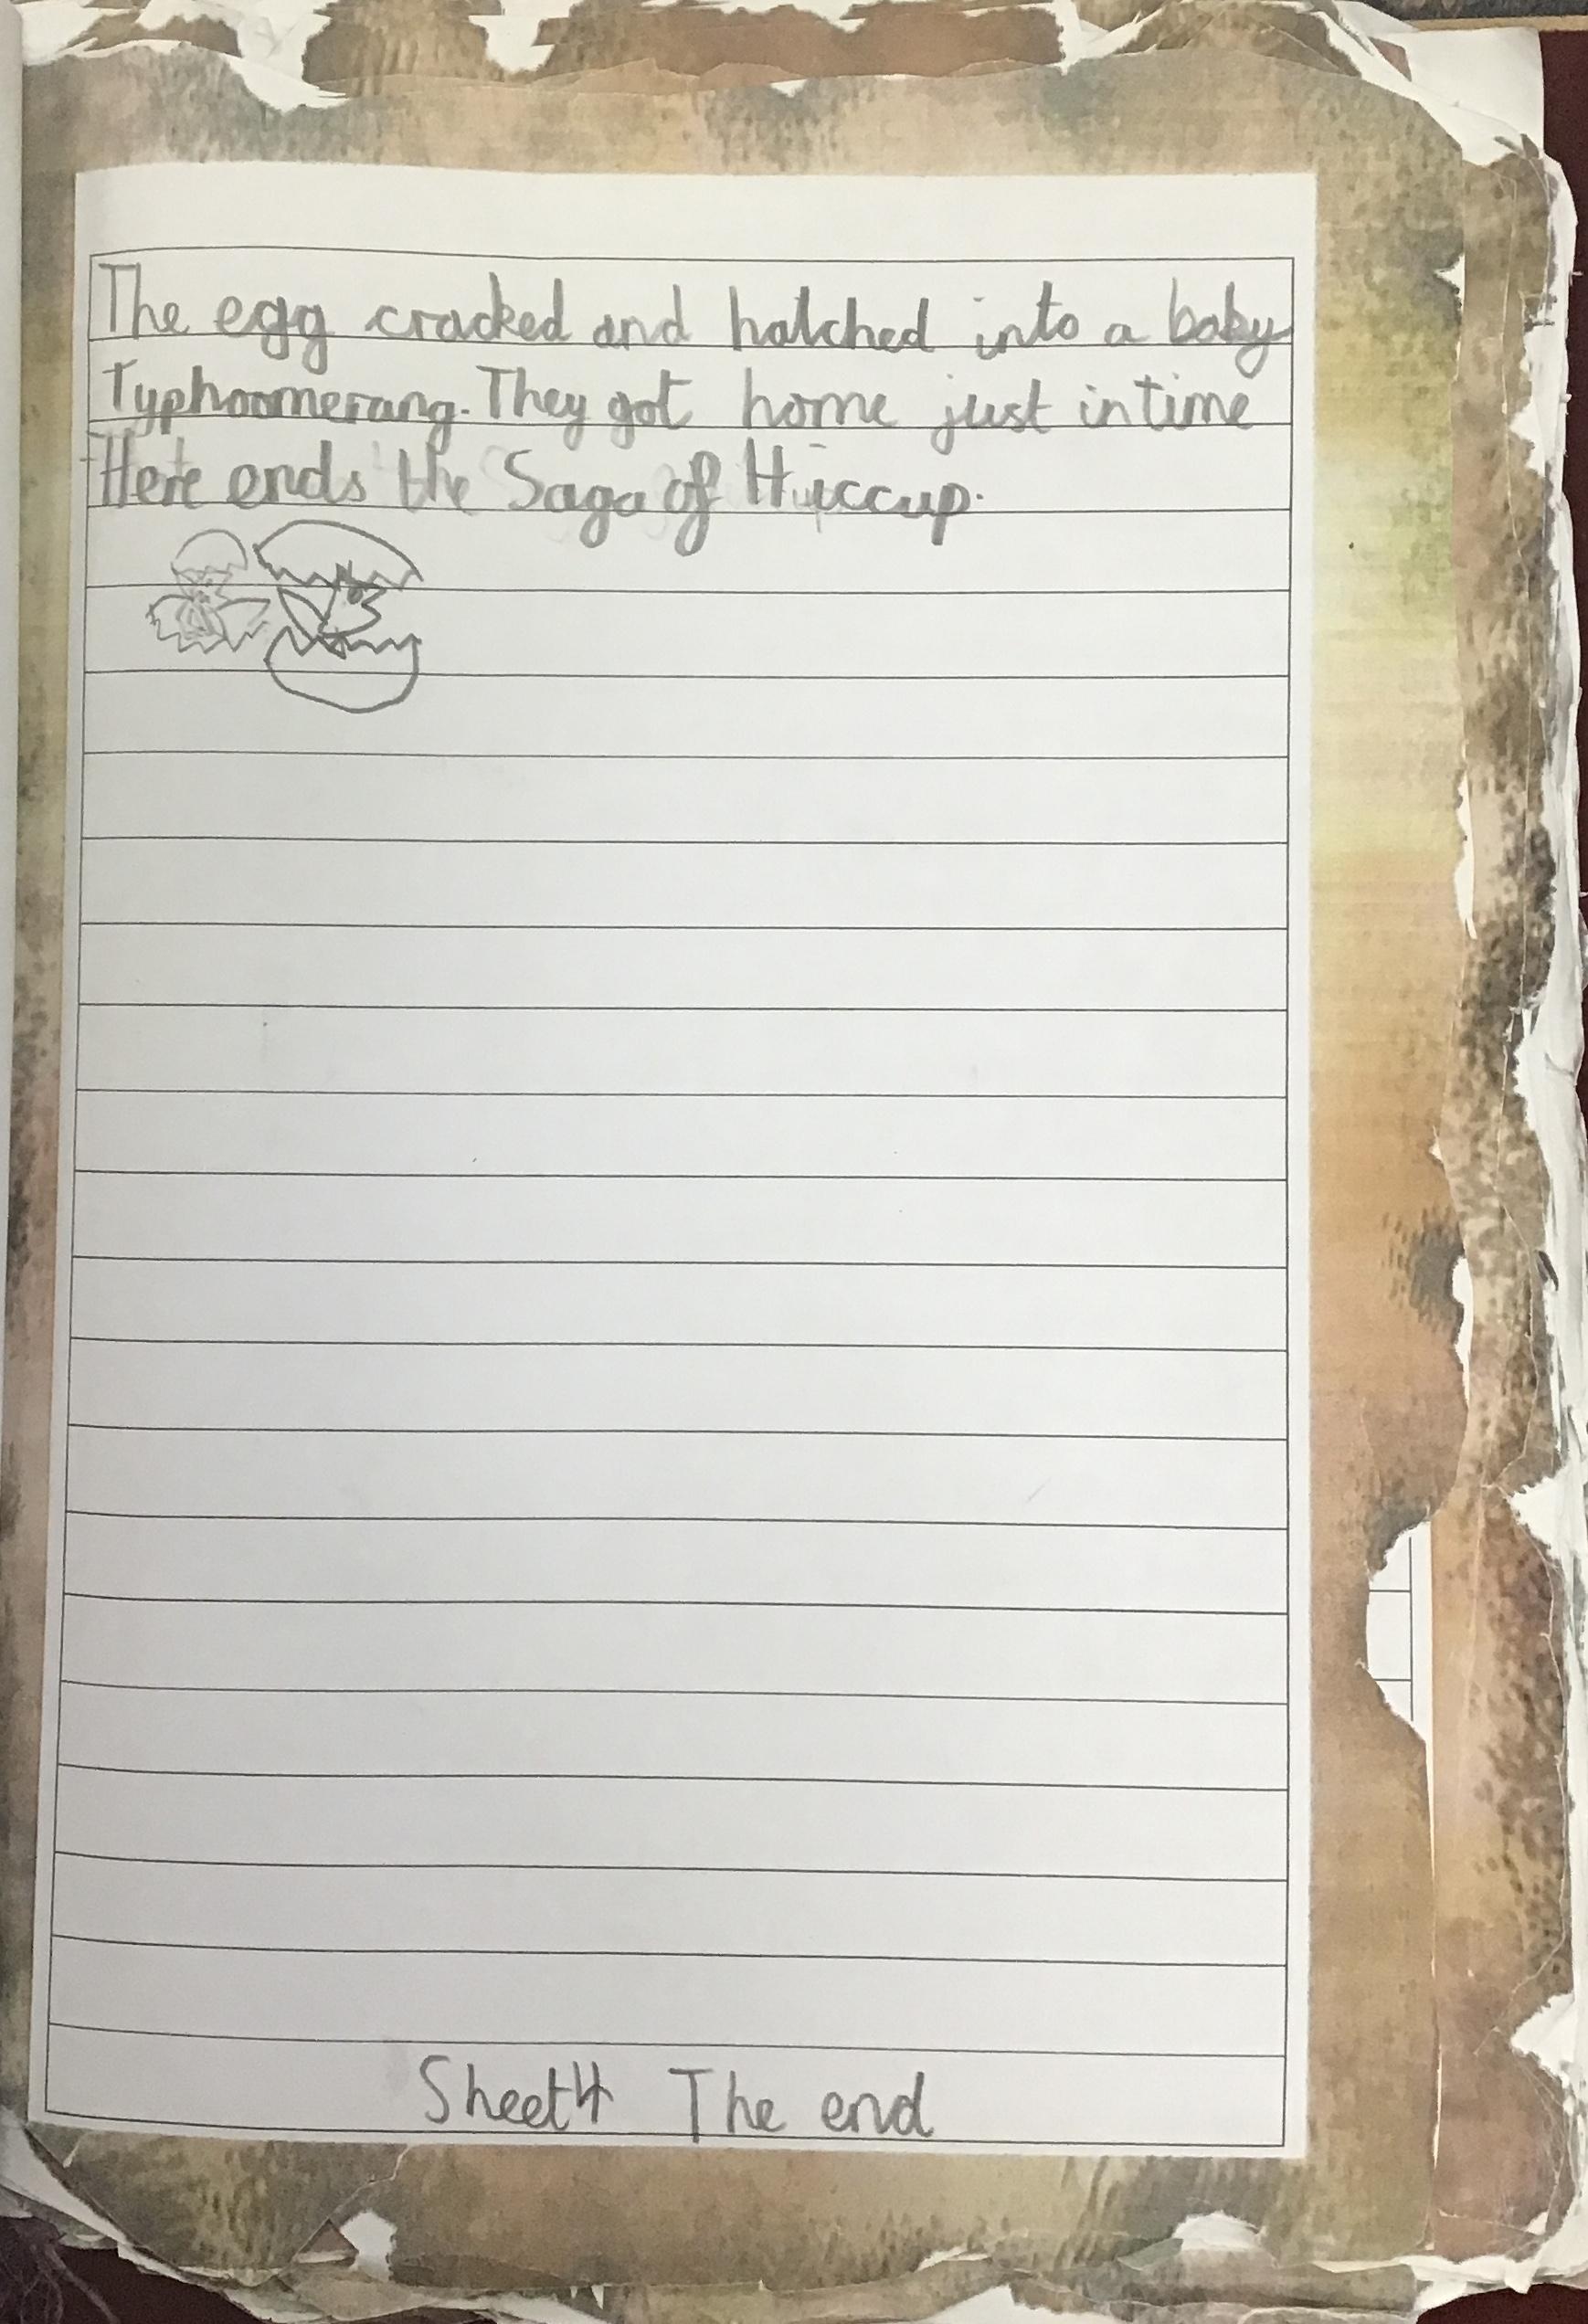 The egg cracked and hatched into a baby
Typhoomerang. They got home just in time
Here ends the Saga of Hiccup.
Sheet 4 The end